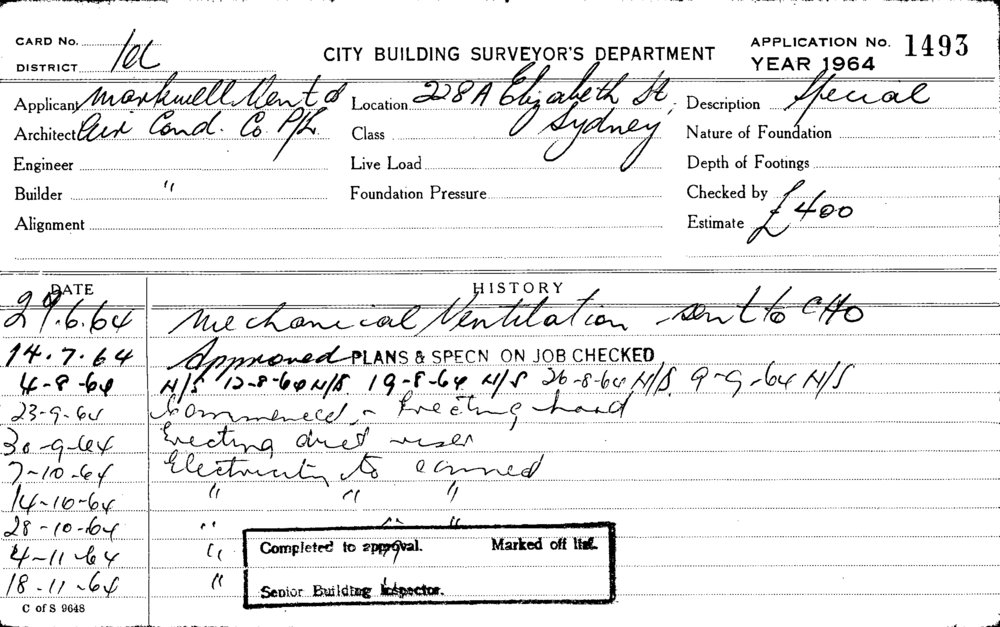 CARD No.
DISTRICT
CITY BUILDING SURVEYOR'S DEPARTMENT
APPLICATION No. 1493
YEAR 1964
Applicant Markwell Vent &
Architect Air Cond. Co. P/L.
Engineer
Builder "
Alignment
Location 228A Elizabeth St,
Class Sydney
Live Load
Foundation Pressure
Description Special
Nature of Foundation
Depth of Footings
Checked by
Estimate £400
DATE HISTORY
29.6.64 Mechanical Ventilation sent to CHO
14.7.64 Approved PLANS & SPECN ON JOB CHECKED
4-8-64 N/S 12-8-64 N/S 19-8-64 N/S 26-8-64 N/S 9-9-64 N/S
23-9-64 Commenced - Erecting hood
30-9-64 Erecting duct riser
7-10-64 Electricity to
14-10-64 " " "
28-10-64 " " "
4-11-64 "
18-11-64 "
Completed to approval. Marked off list.
Senior Building Inspector.
C of S 9648